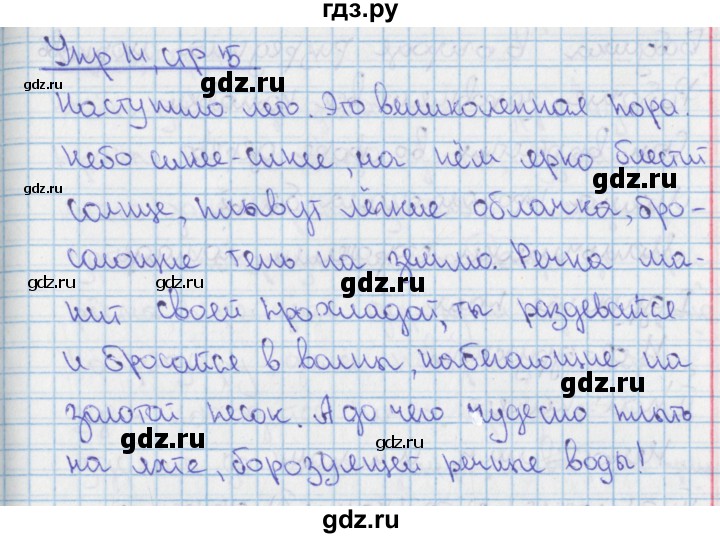 гдз.ру
Упр 14, стр 15
Наступило лето. Это великолепная пора.
Небо синее-синее, на нём ярко блестит
солнце, плывут лёгкие облачка, бро-
сающие тень на землю. Речка ма-
нит своей прохладой, ты раздевайся
и бросайся в волны, набегающие на
золотой песок. А до чего чудесно плыть
на яхте, бороздящей речные воды!
gdz.ru
gdz.ru
gdz.ru
gdz.ru
gdz.ru
gdz.ru
gdz.ru
gdz.ru
gdz.ru
gdz.ru
gdz.ru